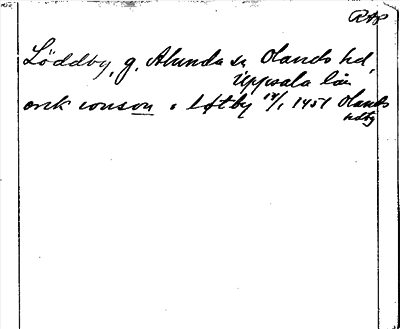 RAP
Löddby, g. Alunda sn Olands hd,
Uppsala län
erik ionson i løtby 17/1 1451 Olands
hdbg